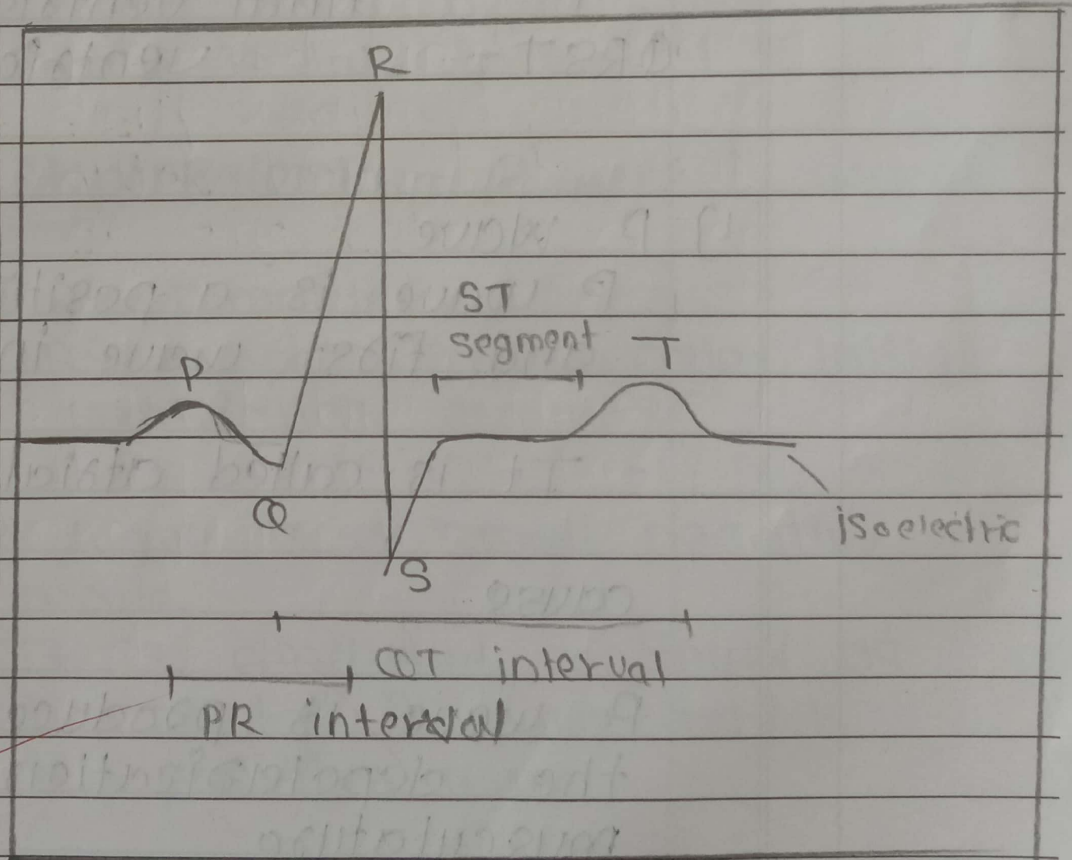 R
ST
segment
T
P
Q
isoelectric
S
QT interval
PR interval